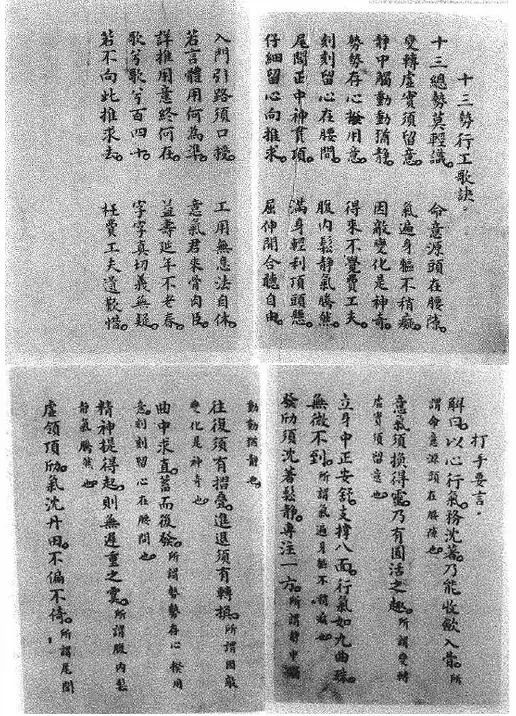 十三勢行工歌訣。
十三總勢莫輕識。命意源頭在腰隙。
變轉虛實須留意。氣遍身軀不稍癡。
靜中觸動動猶靜。因敵變化是神奇。
勢勢存心揆用意。得來不覺費工夫。
刻刻留心在腰間。腹內鬆靜氣騰然。
尾閭正中神貫頂。滿身輕利頂頭懸。
仔細留心向推求。屈伸開合聽自由。
入門引路須口授。工用無息法自休。
若言體用何為準。意氣君來骨肉臣。
詳推用意終何在。益壽延年不老春。
歌兮歌兮百四十。字字真切義無疑。
若不向此推求去。枉費工夫遺歎惜。
打手要言。
解曰。以心行氣。務沈著。乃能收歛入骨。所
謂命意源頭在腰隙也。
意氣須換得靈。乃有圓活之趣。所謂變轉
虛實須留意也。
立身中正安舒。支撐八面。行氣如九曲珠。
無微不到。所謂氣遍身軀不稍癡也。
發劤須沈著鬆靜。專注一方。所謂靜中觸
動動猶靜也。
往復須有摺疊。進退須有轉換。所謂因敵
變化是神奇也。
曲中求直。蓄而後發。所謂勢勢存心揆用
意。刻刻留心在腰間也。
精神提得起。則無遲重之虞。所謂腹內鬆
靜氣騰然也。
虛領頂劤。氣沈丹田。不偏不倚。所謂尾閭